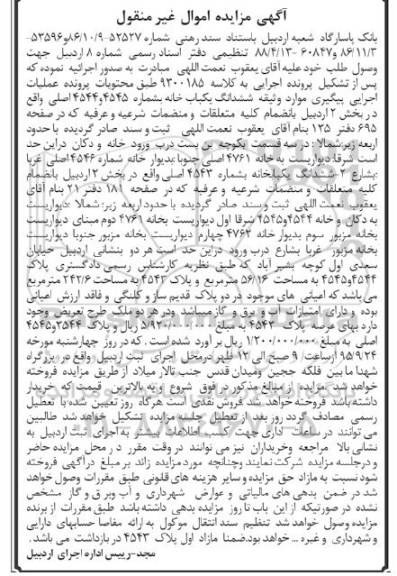 آگهی مزایده اموال غیر منقول
بانک پاسارگاد شعبه اردبیل باستناد سند رهنی شماره ۵۲۵۲۷-۸۶/۱۰/۹و۵۳۵۹۶-
۸۶/۱۱/۳ و ۶۰۸۴۷-۸۸/۴/۱۳ تنظیمی دفتر اسناد رسمی شماره ۸ اردبیل جهت
وصول طلب خود علیه آقای یعقوب نعمت اللهی مبادرت به صدور اجرائیه نموده که
پس از تشکیل پرونده اجرایی به کلاسه ۹۳۰۰۱۸۵ طبق محتویات پرونده عملیات
اجرایی پیگیری موارد وثیقه ششدانگ یکباب خانه بشماره ۴۵۴۵و۴۵۴۴ اصلی واقع
در بخش ۲ اردبیل بانضمام کلیه متعلقات و منضمات شرعیه و عرفیه که در صفحه
۶۹۵ دفتر ۱۲۵ بنام آقای یعقوب نعمت اللهی ثبت و سند صادر گردیده با حدود
اربعه زیر:شمالا در سه قسمت بکوچه بن بست درب ورود خانه و دکان در این حد
است شرقا:دیواریست به خانه ۴۷۶۱ اصلی جنوبا:بدیوار خانه شماره ۴۵۴۶ اصلی غربا
بشارع ۲-ششدانگ یکبابخانه بشماره ۴۵۴۳ اصلی واقع در بخش ۲ اردبیل بانضمام
کلیه متعلقات و منضمات شرعیه و عرفیه که در صفحه ۱۸۰ دفتر ۲۱ بنام آقای
یعقوب نعمت اللهی ثبت و سند صادر گردیده با حدود اربعه زیر: شمالا :دیواریست
به دکان و خانه ۴۵۴۴و۴۵۴۵ شرقا اول دیواریست بخانه ۴۷۶۱ دوم مبنای دیواریست
بخانه مزبور سوم بدیوار خانه ۴۷۶۲ چهارم دیواریست بخانه مزبور جنوبا دیواریست
بخانه مزبور غربا بشارع درب ورود در این حد است هر دو بنشانی اردبیل خیابان
سعدی اول کوچه بشیر آباد که طبق نظریه کارشناس رسمی دادگستری پلاک
۴۵۴۴و۴۵۴۵ به مساحت ۵۶/۱۶ مترمربع و پلاک ۴۵۴۳ به مساحت ۲۴۲/۶ مترمربع
می باشد که اعیانی های موجود در دو پلاک قدیم ساز و کلنگی و فاقد ارزش اعیانی
بوده و دارای امتیازات آب و برق و گاز میباشد ودر هر دو ملک طرح تعریض وجود
دارد بهای عرصه پلاک ۴۵۴۳ به مبلغ ۵/۹۲۰/۰۰۰/۰۰۰ ریال و پلاک ۴۵۴۴و۴۵۴۵
اصلی به مبلغ ۱/۲۰۰/۰۰۰/۰۰۰ ریال بر آورد شده است .که در روز چهارشنبه مورخه
۹۵/۹/۲۴ ازساعت ۹ صبح الی ۱۲ ظهر درمحل اجرای ثبت اردبیل واقع در بزرگراه
شهدا ما بین فلکه ججین ومیدان قدس جنب تالار میلاد از طریق مزایده فروخته
خواهد شد. مزایده از مبالغ مذکور در فوق شروع و به بالاترین قیمت که خریدار
داشته باشد فروخته خواهد شد.فروش نقدی است هرگاه روز تعیین شده با تعطیل
رسمی مصادف گردد روز بعد از تعطیل جلسه مزایده تشکیل خواهد شد طالبین
می توانند در ساعات اداری جهت کسب اطلاعات بیشتر به اجرای ثبت اردبیل به
نشانی بالا مراجعه وخریداران نیز می توانند در وقت مقرر در محل مزایده حاضر
و درجلسه مزایده شرکت نمایند وچنانچه مورد مزایده زائد بر مبلغ درآگهی فروخته
شود نسبت به مازاد حق مزایده و سایر هزینه های قانونی طبق مقررات وصول خواهد
شد در ضمن بدهی های مالیاتی و عوارض شهرداری و آب وبرق و گاز مشخص
نشده در صورتیکه از این باب تا روز مزایده بدهی داشته باشد طبق مقررات از برنده
مزایده وصول خواهد شد تنظیم سند انتقال موکول به ارائه مفاصا حسابهای دارایی
و شهرداری و غیره ... خواهد بود.ضمنا مازاد اول پلاک ۴۵۴۳ در بازداشت می باشد.
مجد-رییس اداره اجرای اردبیل